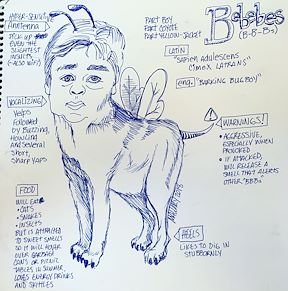 HYPER-SENSITIVE
ANTTENNA
PICK UP
EVEN THE
SLIGHTEST
INSECTS
(ALSO WIFI)
PART BOY
PART COYOTE
PART YELLOW-JACKET
BeBeBes
(B-B-BS)
LATIN
"SAPIEN ADULESCENS
CIMEX LATRANS"
eng. "BARKING BUG BOY"
VOCALIZING
YELPS
FOLLOWED
BY BUZZING,
HOWLING
AND SEVERAL
SHORT,
SHARP YAPS
WARNINGS!
• AGGRESSIVE,
ESPECIALLY WHEN
PROVOKED
• IF ATTACKED,
WILL RELEASE A
SMELL THAT ALERTS
OTHER "BBBs"
FOOD
WILL EAT
• CATS
• SNAKES
• INSECTS
BUT IS ATTRACTED
TO SWEET SMELLS
SO IT WILL HOVER
OVER GARBAGE
CANS OR PICNIC
TABLES IN SUMMER.
LOVES ENERGY DRINKS
AND SKITTLES
HEELS
LIKES TO DIG IN
STUBBORNLY